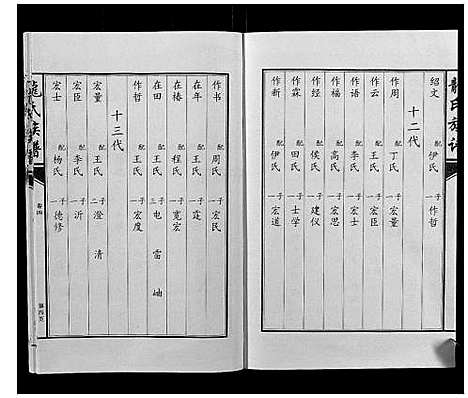 龍氏族譜
绍文 配伊氏 一子 作哲
十二代
作周 配丁氏 一子 宏量
作云 配王氏 一子 宏臣
作语 配李氏 一子 宏士
作福 配高氏 一子 宏思
作经 配侯氏 一子 建仪
作霖 配田氏 一子 士学
作新 配伊氏 一子 宏道
作书 配周氏 一子 宏民
在年 配王氏 一子 霆
在椿 配程氏 一子 寛宏
在田 配王氏 三子 电 雷 岫
作哲 配王氏 一子 宏度
十三代
宏量 配王氏 二子 澄 清
宏臣 配李氏 一子 沂
宏士 配杨氏 一子 德修
龍氏族譜
卷四
第四页